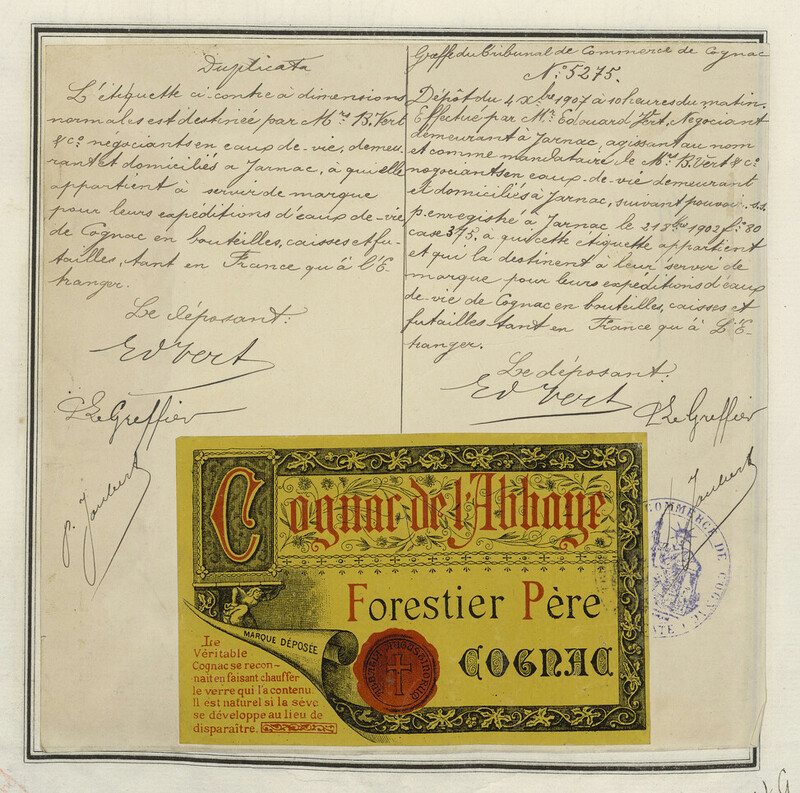 Duplicata
L'étiquette ci-contre à dimensions
normales est destinée par Mrs B. Vert
& Co négociants en eaux-de-vie, demeu-
rant et domiciliés à Jarnac, à qui elle
appartient à servir de marque
pour leurs expéditions d'eaux-de-vie
de Cognac en bouteilles, caisses et fu-
tailles, tant en France qu'à l'É-
tranger.
Le déposant:
Ed Vert
Le Greffier
P. Joubert
Greffe du Tribunal de Commerce de Cognac
N° 5275.
Dépôt du 4 Xbre 1907 à 10 heures du matin.
Effectué par Mr Édouard Vert, Négociant
demeurant à Jarnac, agissant au nom
et comme mandataire de Mrs B. Vert & Co
négociants en eaux-de-vie demeurant
et domiciliés à Jarnac, suivant pouvoir s.s.
p. enregistré à Jarnac le 21 8bre 1902 fo 80
case 375, à qui cette étiquette appartient
et qui la destinent à leur servir de
marque pour leurs expéditions d'eaux
de-vie de Cognac en bouteilles, caisses et
futailles tant en France qu'à L'É-
tranger.
Le déposant:
Ed Vert
Le Greffier
Joubert
COMMERCE DE COGNAC
Cognac de l'Abbaye
Forestier Père
COGNAC
MARQUE DÉPOSÉE
Le
Véritable
Cognac se recon-
nait en faisant chauffer
le verre qui l'a contenu.
Il est naturel si la sève
se développe au lieu de
disparaître.